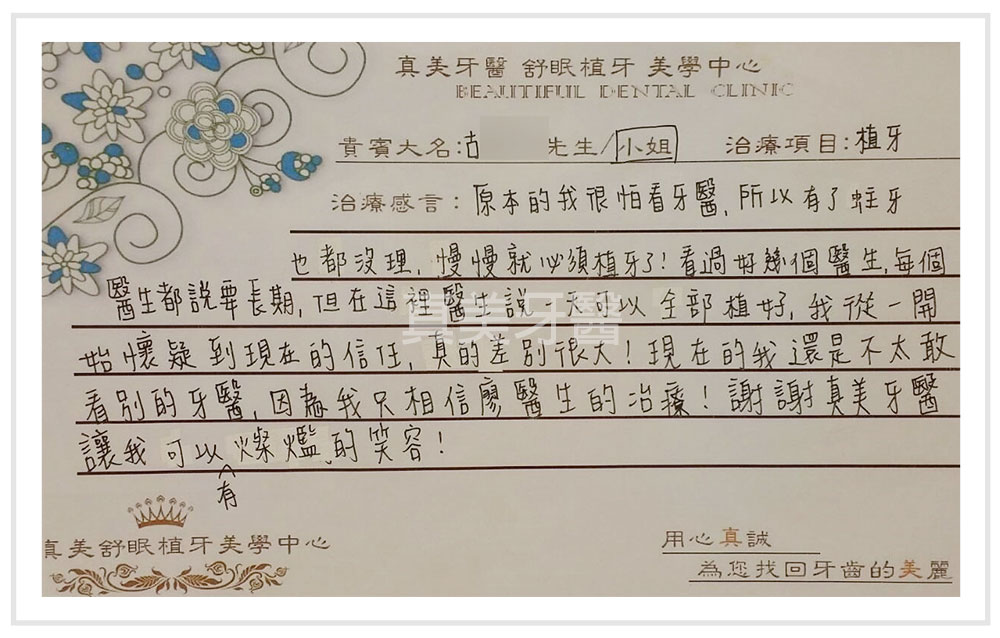 真美牙醫 舒眠植牙 美學中心
BEAUTIFUL DENTAL CLINIC
貴賓大名:古 先生/小姐 治療項目:植牙
治療感言:原本的我很怕看牙醫,所以有了蛀牙
也都沒理,慢慢就必須植牙了!看過好幾個醫生,每個
醫生都說要長期,但在這裡醫生說一天可以全部植好,我從一開
始懷疑到現在的信任,真的差別很大!現在的我還是不太敢
看別的牙醫,因為我只相信廖醫生的治療!謝謝真美牙醫
讓我可以燦爁的笑容!
有
真美牙醫
真美舒眠植牙美學中心
用心真誠
為您找回牙齒的美麗